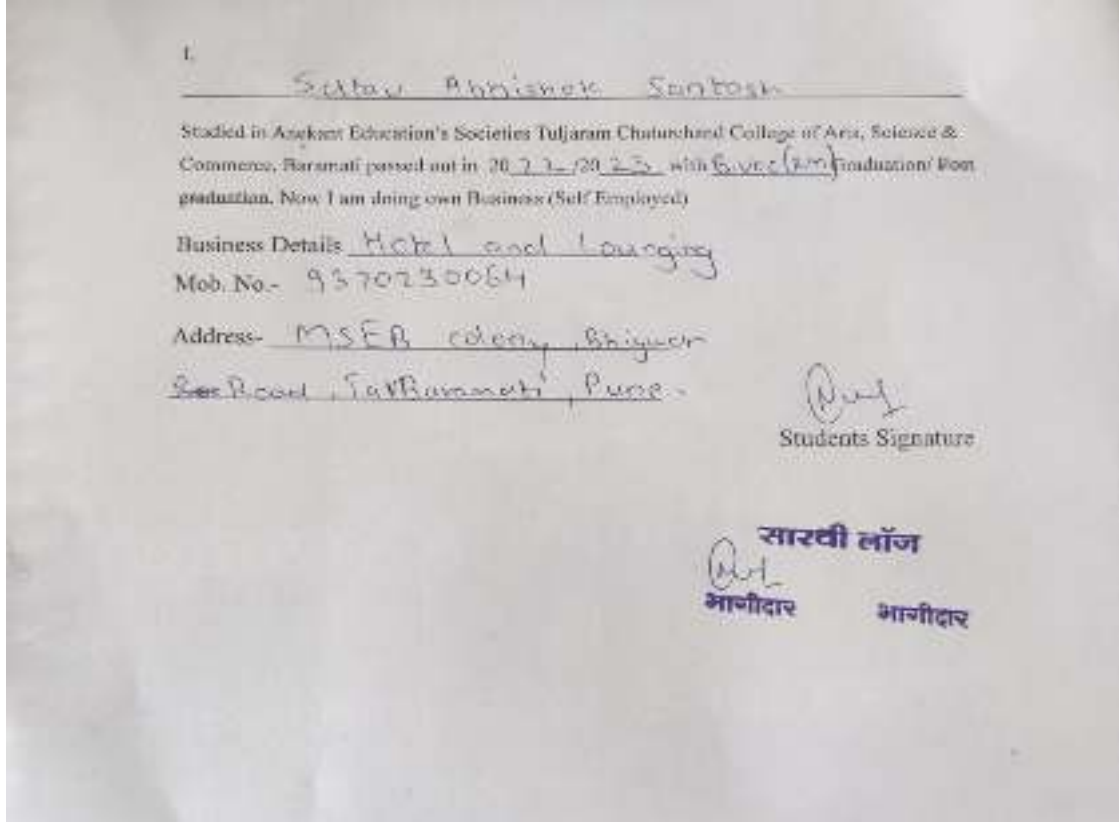 I,
Abhishek Santosh
Studied in Anekant Education's Societies Tuljaram Chaturchand College of Arts, Science &
Commerce, Baramati passed out in 2022/2023 with B.voc(RM) Graduation/ Post
graduation. Now I am doing own Business (Self Employed)
Business Details Hotel and Lounging
Mob. No.- 9370230064
Address- MSEB colony, Bhigwan
Road, Tal Baramati, Pune.
Students Signature
सारथी लॉज
भागीदार भागीदार